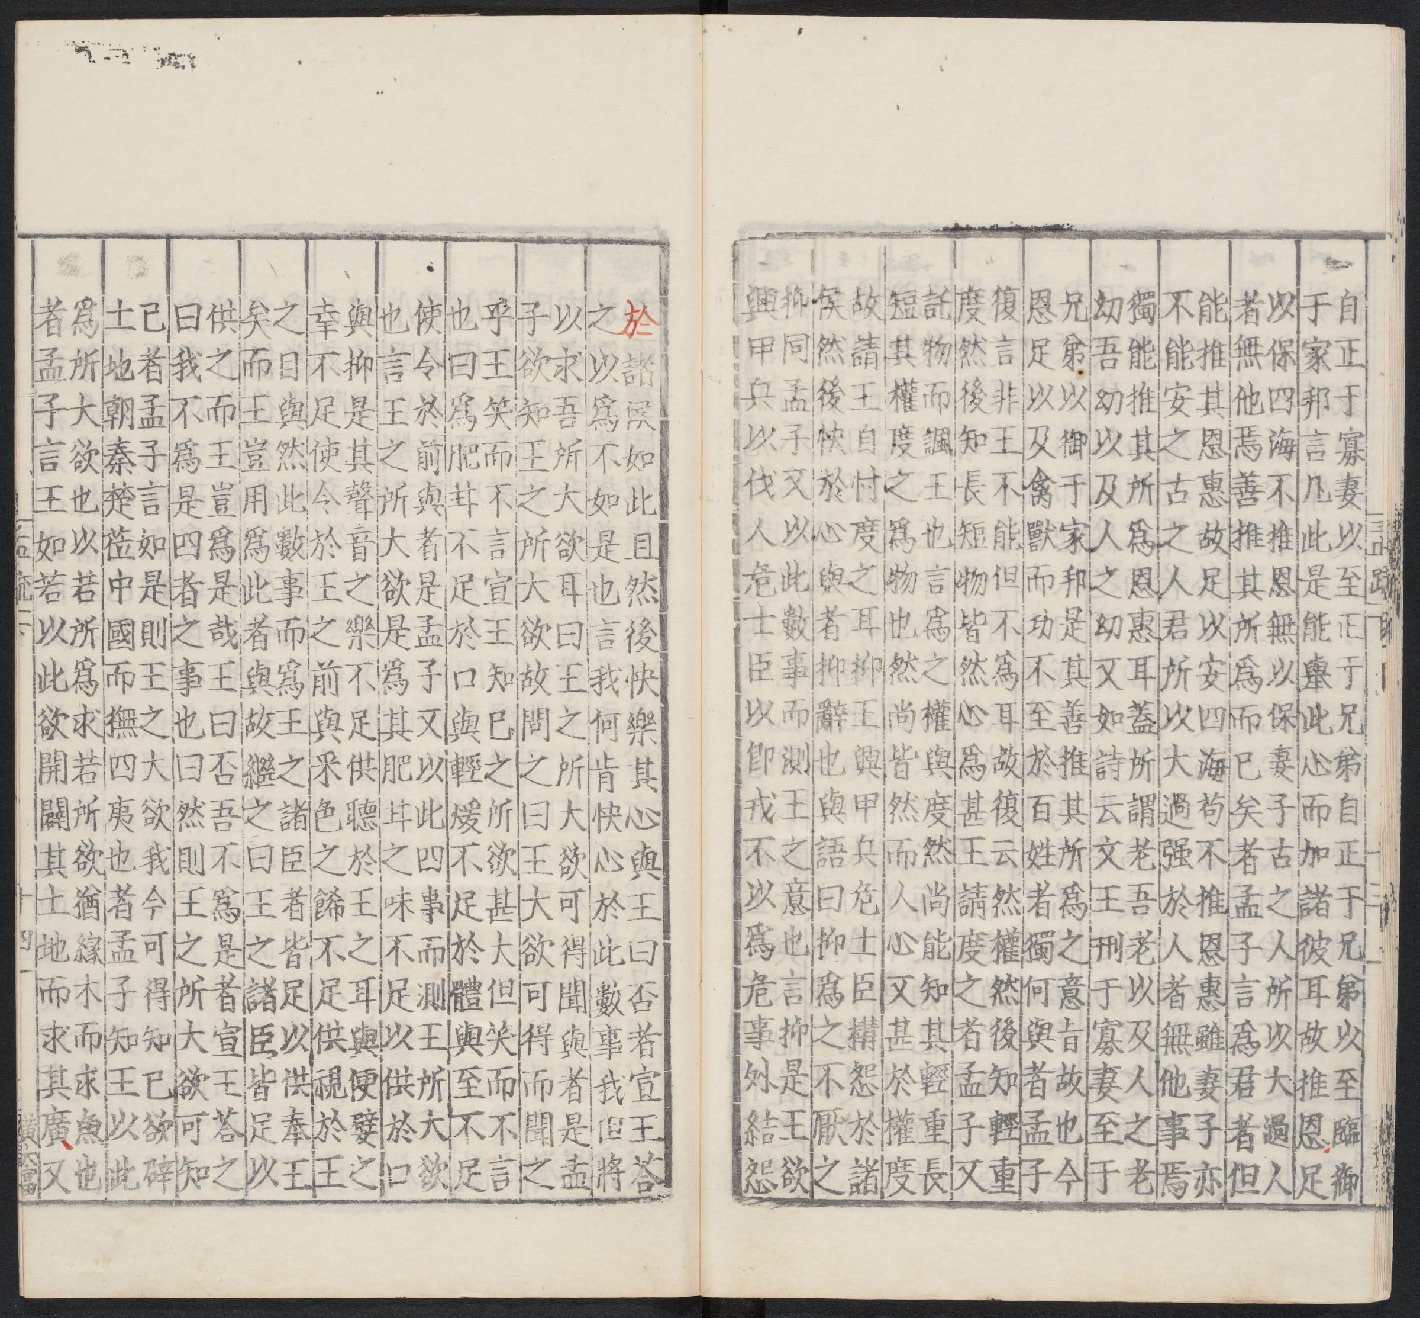 自正于寡妻以至正于兄弟自正于兄弟以至臨御
于家邦言凡此是能舉此心而加諸彼耳故推恩足
以保四海不推恩無以保妻子古之人所以大過人
者無他焉善推其所爲而已矣者孟子言爲君者但
能推其恩惠故足以安四海苟不推恩惠雖妻子亦
不能安之古之人君所以大過强於人者無他事焉
獨能推其所爲恩惠耳蓋所謂老吾老以及人之老
幼吾幼以及人之幼又如詩云文王刑于寡妻至于
兄弟以御于家邦是其善推其所爲之意旨故也今
恩足以及禽獸而功不至於百姓者獨何與者孟子
復言非王不能但不爲耳故復云然權然後知輕重
度然後知長短物皆然心爲甚王請度之者孟子又
託物而諷王也言爲之權與度然尚能知其輕重長
短其權度之爲物也然尚皆然而人心又甚於權度
故請王自忖度之耳抑王興甲兵危士臣構怨於諸
侯然後快於心與者抑辭也與語曰抑爲之不厭之
抑同孟子又以此數事而測王之意也言抑是王欲
興甲兵以伐人危士臣以即戎不以爲危事外結怨
於諸侯如此且然後快樂其心與王曰否者宣王荅
之以爲不如是也言我何肯快心於此數事我但將
以求吾所大欲耳曰王之所大欲可得聞與者是孟
子欲知王之所大欲故問之曰王大欲可得而聞之
乎王笑而不言宣王知已之所欲甚大但笑而不言
也曰爲肥甘不足於口與輕煖不足於體與至不足
使令於前與者是孟子又以此四事而測王所大欲
也言王之所大欲是爲其肥甘之味不足以供於口
與抑是其聲音之樂不足供聽於王之耳與便嬖之
幸不足使令於王之前與釆色之餙不足供視於王
之目與然此數事而爲王之諸臣者皆足以供奉王
矣而王豈用爲此者與故繼之曰王之諸臣皆足以
供之而王豈爲是哉王曰否吾不爲是者宣王荅之
曰我不爲是四者之事也曰然則王之所大欲可知
已者孟子言如是則王之大欲我今可得知已欲辟
土地朝秦楚莅中國而撫四夷也者孟子知王以此
爲所大欲也以若所爲求若所欲猶緣木而求魚也
者孟子言王如若以此欲開闢其土地而求其廣又